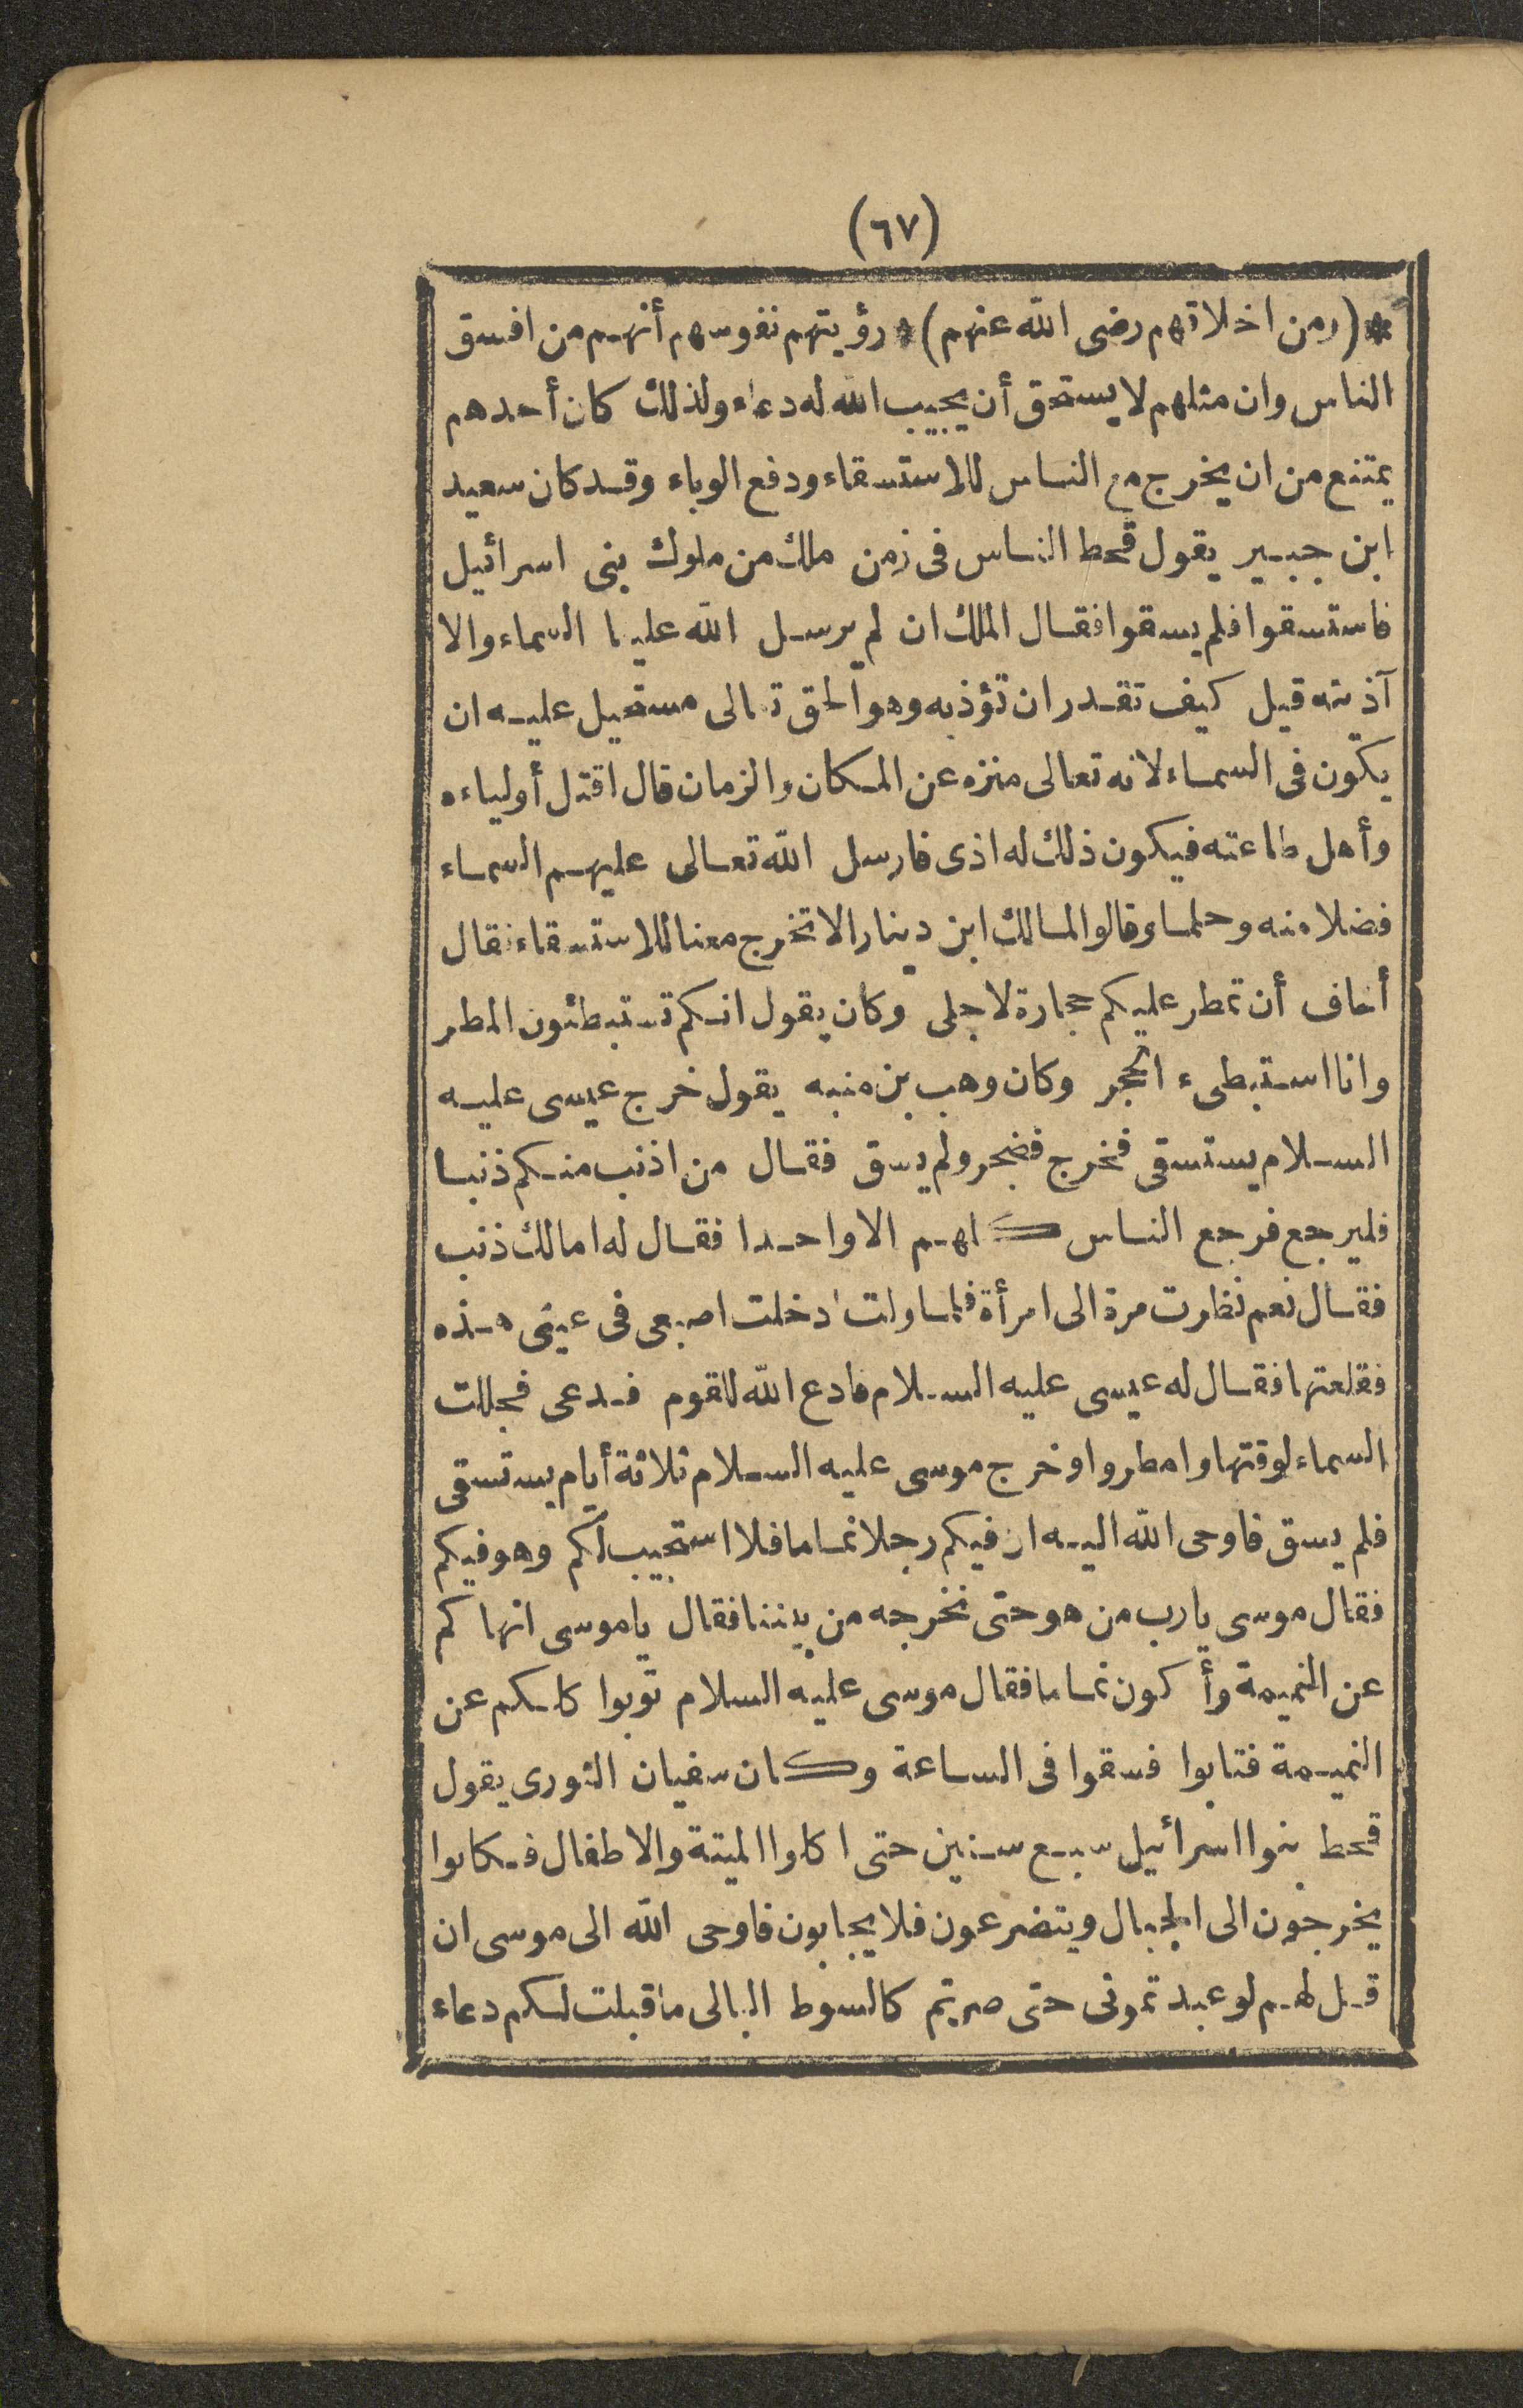 (٦٧)
* (ومن اخلاقهم رضى الله عنهم) * رؤيتهم نفوسهم أنهم من افسق
الناس وان مثلهم لا يستحق أن يجيب الله له دعاء ولذلك كان أحدهم
يمتنع من ان يخرج مع الناس للاستسقاء ودفع الوباء وقد كان سعيد
ابن جبير يقول قحط الناس فى زمن ملك من ملوك بنى اسرائيل
فاستسقوا فلم يسقوا فقال الملك ان لم يرسل الله علينا السماء والا
آذيته قيل كيف تقدر ان تؤذيه وهو الحق تعالى مستحيل عليه ان
يكون فى السماء لانه تعالى منزه عن المكان والزمان قال اقتل أولياءه
وأهل طاعته فيكون ذلك له اذى فارسل الله تعالى عليهم السماء
فضلا منه وحلما وقالوا لمالك ابن دينار الا تخرج معنا للاستسقاء فقال
أخاف أن تمطر عليكم حجارة لاجلى وكان يقول انكم تستبطئون المطر
وانا استبطىء الحجر وكان وهب بن منبه يقول خرج عيسى عليه
السلام يستسقى فخرج فضجر ولم يسق فقال من اذنب منكم ذنبا
فليرجع فرجع الناس كلهم الا واحدا فقال له امالك ذنب
فقال نعم نظرت مرة الى امرأة فلما ولت ادخلت اصبعى فى عينى هذه
فقلعتها فقال له عيسى عليه السلام فادع الله للقوم فدعى فجللت
السماء لوقتها وامطروا وخرج موسى عليه السلام ثلاثة أيام يستسقى
فلم يسق فاوحى الله اليه ان فيكم رجلا نماما فلا استجيب لكم وهو فيكم
فقال موسى يارب من هو حتى نخرجه من بيننا فقال ياموسى انهاكم
عن النميمة وأكون نماما فقال موسى عليه السلام توبوا كلكم عن
النميمة فتابوا فسقوا فى الساعة وكان سفيان الثورى يقول
قحط بنوا اسرائيل سبع سنين حتى اكلوا الميتة والاطفال فكانوا
يخرجون الى الجبال ويتضرعون فلا يجابون فاوحى الله الى موسى ان
قل لهم لو عبدتمونى حتى صرتم كالسوط البالى ما قبلت لكم دعاء